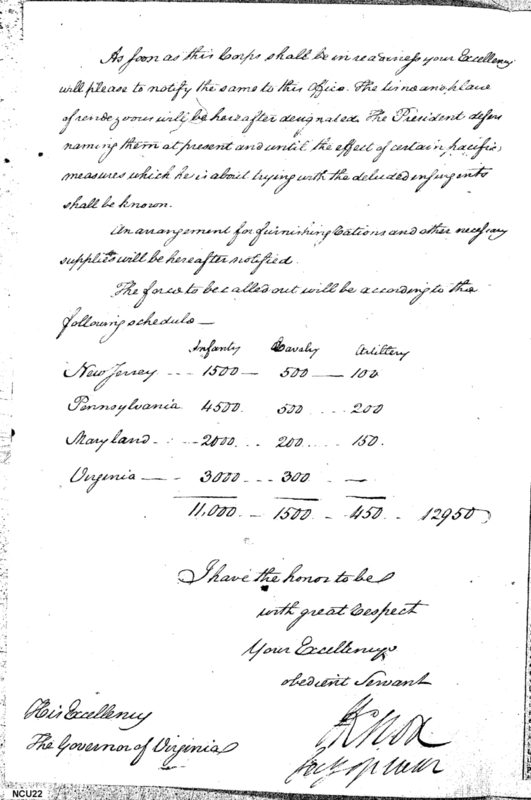 As soon as this Corps shall be in readiness your Excellency
will please to notify the same to this Office. The time and place
of rendezvous will be hereafter designated. The President defers
naming them at present and until the effect of certain pacific
measures which he is about trying with the deluded insurgents
shall be known.
An arrangement for furnishing Rations and other necessary
supplies will be hereafter notified.
The force to be called out will be according to the
following schedule—
Infantry Cavalry Artillery
New Jersey --- 1500 — 500 — 100
Pennsylvania 4500. 500 ... 200
Maryland ... 2000 ... 200 ... 150.
Virginia —— . 3000 ... 300 . —
11,000. — 1500 .. 450 .. 12950
I have the honor to be
with great Respect
Your Excellency's
obedient Servant
HKnox
Secy of War
His Excellency
The Governor of Virginia
NCU22